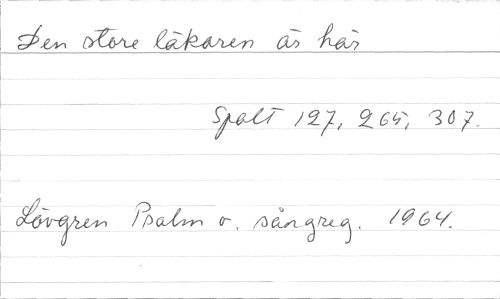 Den store läkaren är här
Spalt 127, 265, 307.
Lövgren Psalm o. sångreg. 1964.